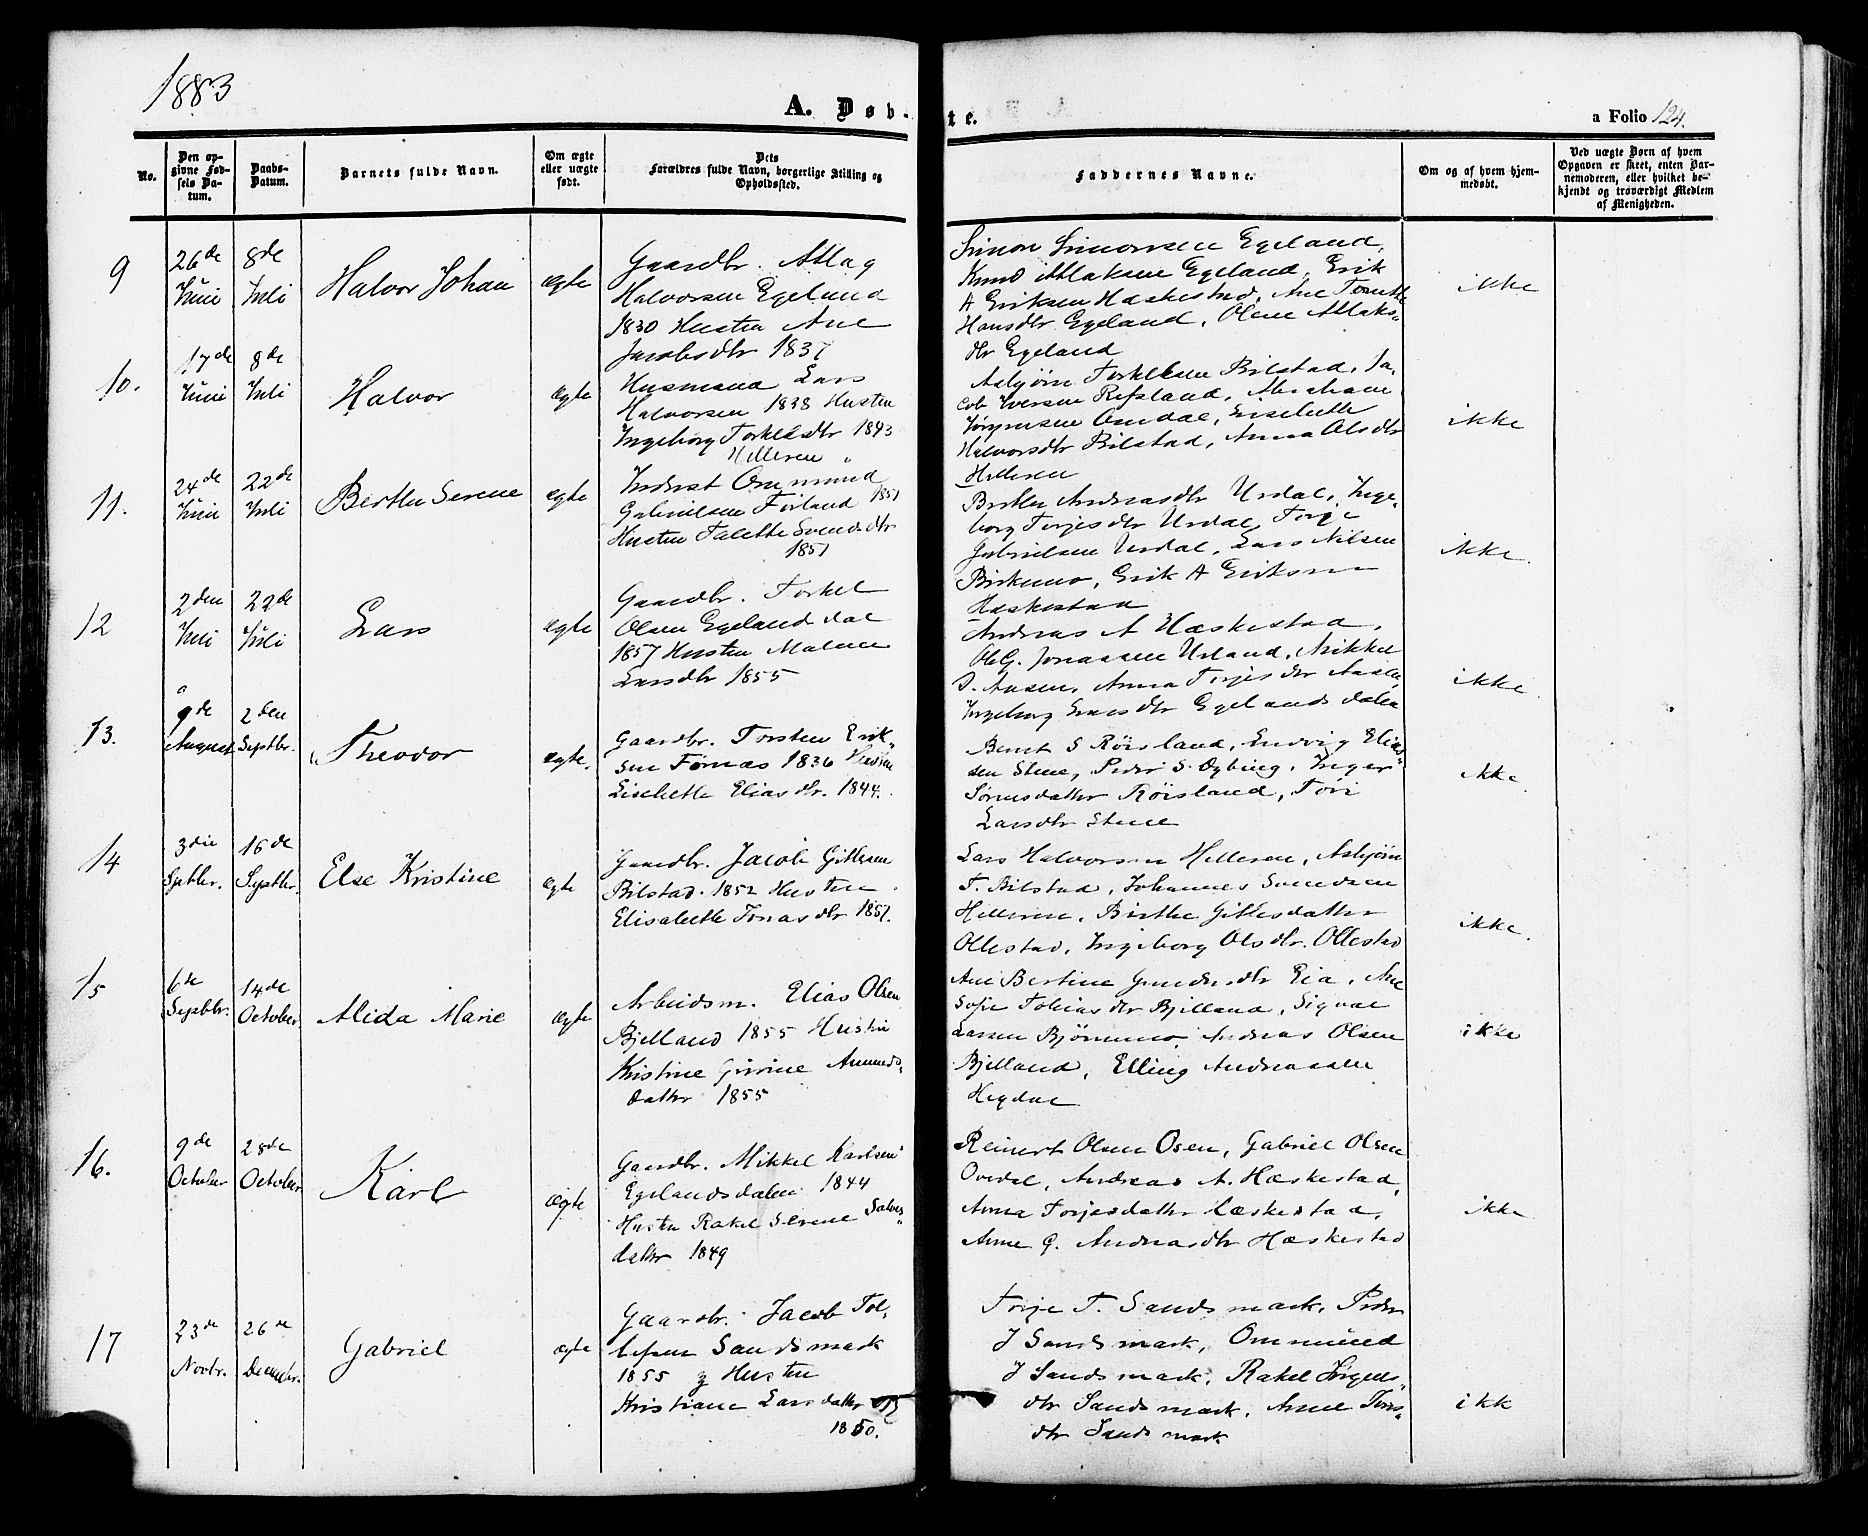 1883
A. Døb-
te.
a Folio 124.
No.
Den op-
givne Fød-
sels Da-
tum.
Daabs-
Datum.
Barnets fulde Navn.
Om ægte
eller uægte
født.
Dets
Forældres fulde Navn, borgerlige Stilling og
Opholdssted.
Faddernes Navne.
Om og af hvem hjem-
medøbt.
Ved uægte Børn af hvem
Opgaven er skeet, enten Bar-
nemoderen, eller hvilket be-
kjendt og troværdigt Medlem
af Menigheden.
9
26de
Juni
8de
Juli
Halvor Johan
ægte
Gaardbr. Atlag
Halvorsen Egeland
1830 Hustru Ane
Jacobsdtr 1837
Simon Simonsen Egeland,
Knud Atlaksen Egeland, Erik
A Eriksen Hæskestad, Ane Tomette
Hansdtr Egeland, Olene Atlaks-
dtr Egeland
ikke
10.
17de
Juni
8de
Juli
Halvor
ægte
Husmand Lars
Halvorsen 1838 Hustru
Ingeborg Torkelsdtr 1843
Helleren "
Asbjørn Torkelsen Bilstad, Ja-
cob Iversen Refsland, Abraham
Jørgensen Omdal, Lisebette
Halvorsdtr Bilstad, Anna Olsdtr
Helleren
ikke
11.
24de
Juni
22de
Juli
Berthe Serene
ægte
Inderst Ommund
Gabrielsen Förland 1857
Hustru Talette Svendsdtr
1857
Berthe Andreasdtr Urdal, Inge-
borg Torjesdtr Urdal, Torje
Gabrielsen Urdal, Lars Nilsen
Birkemo, Erik A Eriksen
Hæskestad
ikke
12
2den
Juli
22de
Juli
Lars
ægte
Gaardbr. Torkel
Olsen Egelandsdal
1857 Hustru Malene
Larsdtr 1855
Andreas A Hæskestad,
Ole G. Jonassen Urland, Mikkel
D. Aasen, Anna Torjesdtr Aasen,
Ingeborg Larsdtr Egelandsdalen
ikke
13.
9de
August
2den
Septbr.
Theodor
ægte.
Gaardbr. Torsten Erik-
sen Tørnæs 1836 Hustru
Lisebette Eliasdtr. 1844.
Berent S Röisland, Ludvig Elias-
sen Stene, Peder S. Øybing, Inger
Sörensdatter Röisland, Tori
Larsdtr Stene
ikke
14
3die
Septbr.
16de
Septbr.
Else Kristine
ægte
Gaardbr. Jacob Gitlesen
Bilstad. 1852 Hustru
Elisabette Jonasdtr 1857.
Lars Halvorsen Helleren, Asbjørn
T. Bilstad, Johannes Svendsen
Helleren, Birthe Gitlesdatter
Ollestad, Ingeborg Olsdtr. Ollestad
ikke.
15
6te
Septbr.
14de
October
Alida Marie
ægte
Arbeidsm. Elias Olsen
Bjelland 1855 Hustru
Kristine Girine Amunds-
datter 1855
Ane Bertine Gundersdtr Eia, Ane
Sofie Tobiasdtr Bjelland, Sigval
Larsen Bjönnmo, Andreas Olsen
Bjelland, Elling Andreassen
Hegdal
ikke
16.
9de
October
28de
October
Karl
ægte
Gaardbr. Mikkel Karlsen
Egelandsdalen 1844
Hustru Rakel Serene Salves-
datter 1849
Reinert Olsen Osen, Gabriel Olsen
Ovedal, Andreas A. Hæskestad,
Anna Torjesdatter Hæskestad,
Anne G. Andreasdtr Hæskestad
ikke
17
23de
Novbr.
26de
Decembr.
Gabriel
ægte
Gaardbr. Jacob Tol-
lefsen Sandsmark
1855 Hustru
Kristiane Larsdatter
1850.
Torje T. Sandsmark, Peder
J Sandsmark, Ommund
J Sandsmark, Rakel
dtr Sandsmark, Anne
dtr Sandsmark
ikk